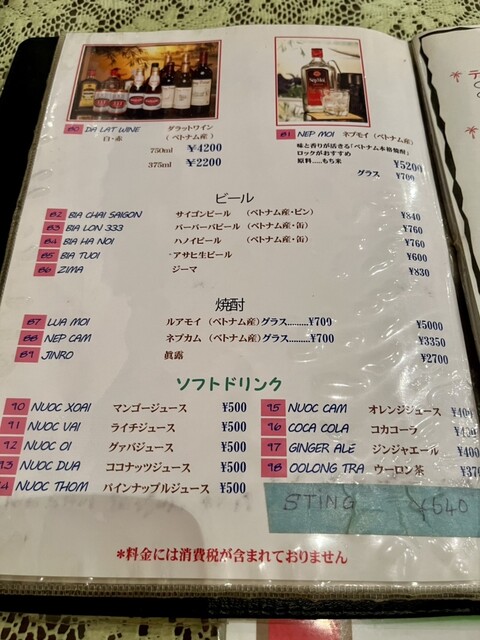 80 DA LAT WINE ダラットワイン
白・赤 (ベトナム産)
750ml ¥4200
375ml ¥2200
81 NEP MOI ネプモイ (ベトナム産)
味と香りが活きる「ベトナム本格焼酎」
ロックがおすすめ
原料.....もち米 ¥5200
グラス ¥700
ビール
82 BIA CHAI SAIGON サイゴンビール (ベトナム産・ビン) ¥840
83 BIA LON 333 バーバーバビール (ベトナム産・缶) ¥760
84 BIA HA NOI ハノイビール (ベトナム産・缶) ¥760
85 BIA TUOI アサヒ生ビール ¥600
86 ZIMA ジーマ ¥830
焼酎
87 LUA MOI ルアモイ (ベトナム産)グラス.........¥700 ¥5000
88 NEP CAM ネプカム (ベトナム産)グラス.........¥700 ¥3350
89 JINRO 眞露 ¥2700
ソフトドリンク
90 NUOC XOAI マンゴージュース ¥500
91 NUOC VAI ライチジュース ¥500
92 NUOC OI グァバジュース ¥500
93 NUOC DUA ココナッツジュース ¥500
94 NUOC THOM パインナップルジュース ¥500
95 NUOC CAM オレンジジュース ¥400
96 COCA COLA コカコーラ
97 GINGER ALE ジンジャエール ¥400
98 OOLONG TRA ウーロン茶
STING ¥540
*料金には消費税が含まれておりません